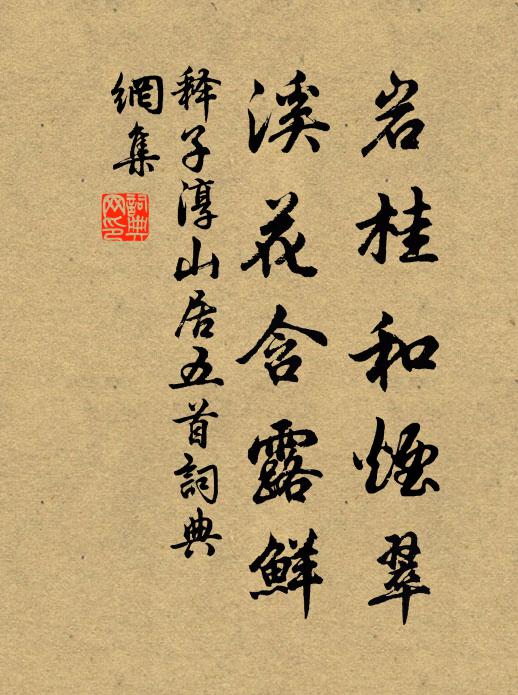 岩桂和煙翠
溪花含露鮮
释子淳山居五首詞典
網集
詞典
网印